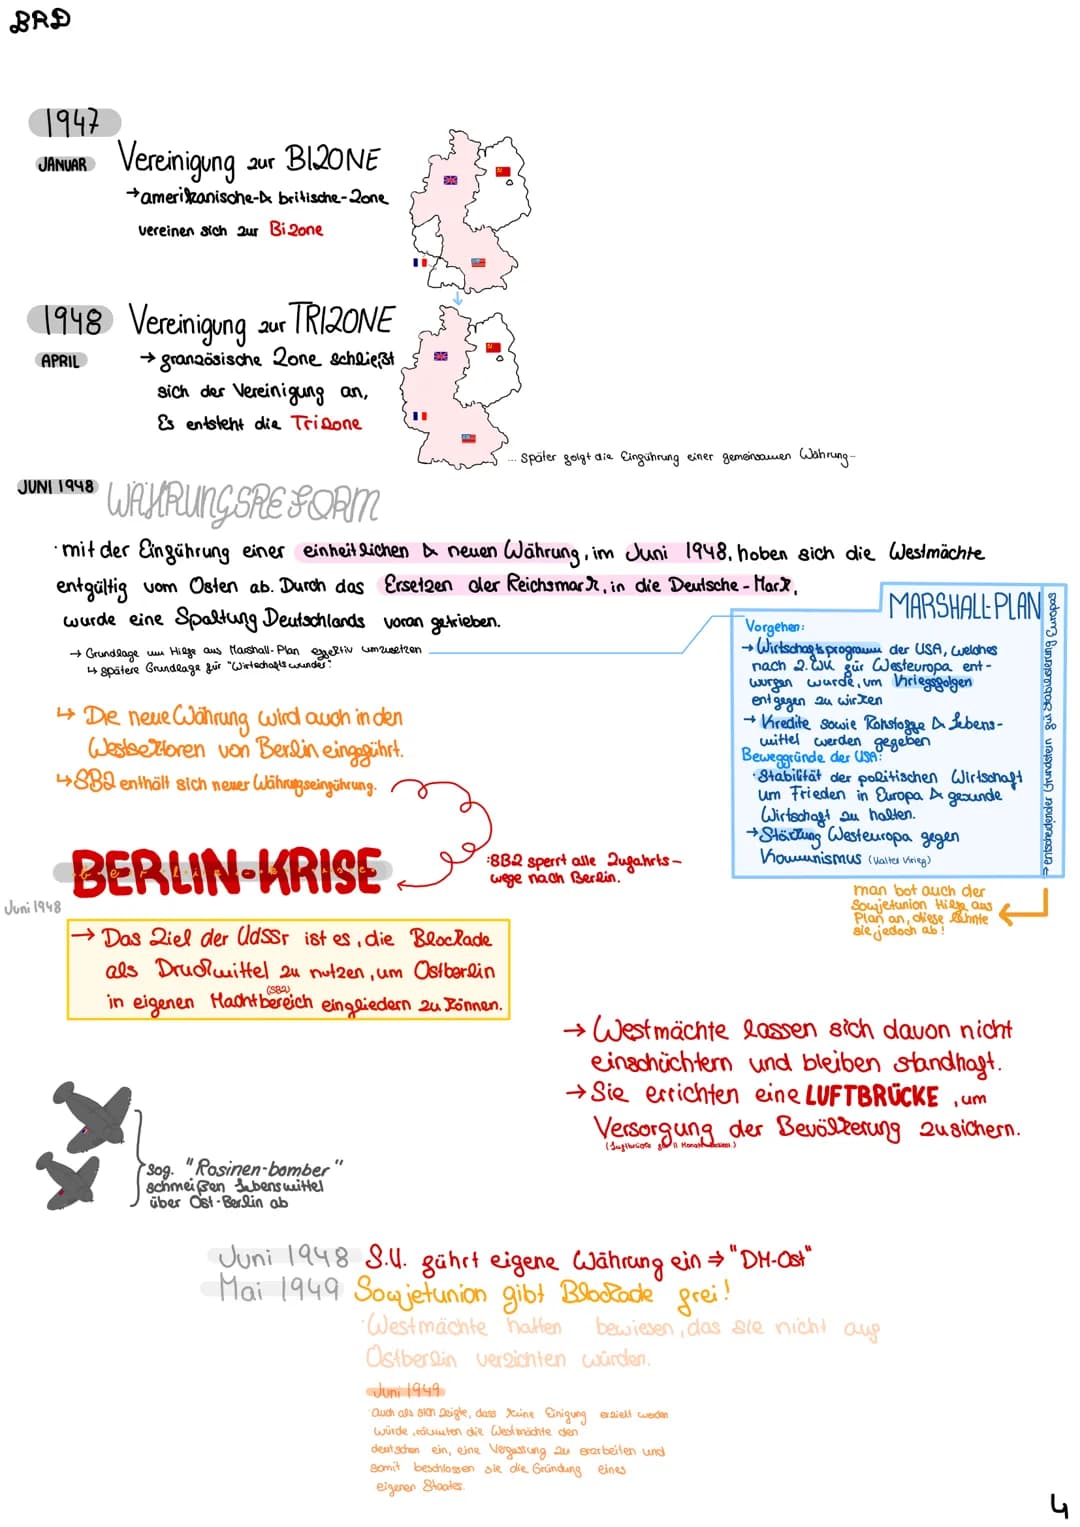 BRD
1947
JANUAR
Vereinigung zur BIZONE
→ amerikanische- & britische-Zone
vereinen sich zur Bizone
1948
APRIL
Vereinigung zur TRIZONE
→ französische Zone schließt
sich der Vereinigung an,
Es entsteht die Trizone
... später folgt die Einführung einer gemeinsamen Währung..
JUNI 1948
WÄHRUNGSREFORM
· mit der Einführung einer einheitlichen & neuen Währung, im Juni 1948, hoben sich die Westmächte
entgültig vom Osten ab. Durch das Ersetzen der Reichsmark, in die Deutsche-Mark,
wurde eine Spaltung Deutschlands voran getrieben.
→ Grundlage um Hilfe aus Marshall-Plan effektiv umzusetzen
↳ spätere Grundlage für "Wirtschaftswunder"
↳ Die neue Währung wird auch in den
Westsektoren von Berlin eingeführt.
↳ SBZ enthält sich neuer Währungseinführung.
MARSHALL-PLAN
Vorgehen:
→ Wirtschaftsprogramm der USA, welches
nach 2. WK für Westeuropa ent-
wurfen wurde, um Kriegsfolgen
entgegen zu wirken
→ Kredite sowie Rohstoffe & Lebens-
mittel werden gegeben
Beweggründe der USA:
· Stabilität der politischen Wirtschaft
um Frieden in Europa & gesunde
Wirtschaft zu halten.
→ Stärkung Westeuropa gegen
Kommunismus (Kalter Krieg)
→ entscheidender Grundstein zur Stabilisierung Europas
man bot auch der
Sowjetunion Hilfe aus
Plan an, diese lehnte
sie jedoch ab!
BERLIN-KRISE
berlin-krise
Juni 1948
:SBZ sperrt alle Zufahrts-
wege nach Berlin.
→ Das Ziel der UdSSr ist es, die Blockade
als Druckmittel zu nutzen, um Ostberlin
in eigenen Machtbereich eingliedern zu können.
(SBZ)
→ Westmächte lassen sich davon nicht
einschüchtern und bleiben standhaft.
→ Sie errichten eine LUFTBRÜCKE, um
Versorgung der Bevölkerung zu sichern.
(Luftbrücke für 11 Monate)
sog. "Rosinen-bomber"
schmeißen Lebensmittel
über Ost-Berlin ab
Juni 1948 S.U. führt eigene Währung ein ⇒ "DM-Ost"
Mai 1949 Sowjetunion gibt Blockade frei!
· Westmächte hatten bewiesen, das sie nicht auf
Ostberlin verzichten würden.
Juni 1949
· auch als sich zeigte, dass keine Einigung erzielt werden
würde, räumten die Westmächte den
deutschen ein, eine Verfassung zu erarbeiten und
somit beschlossen sie die Gründung eines
eigenen Staates.
4